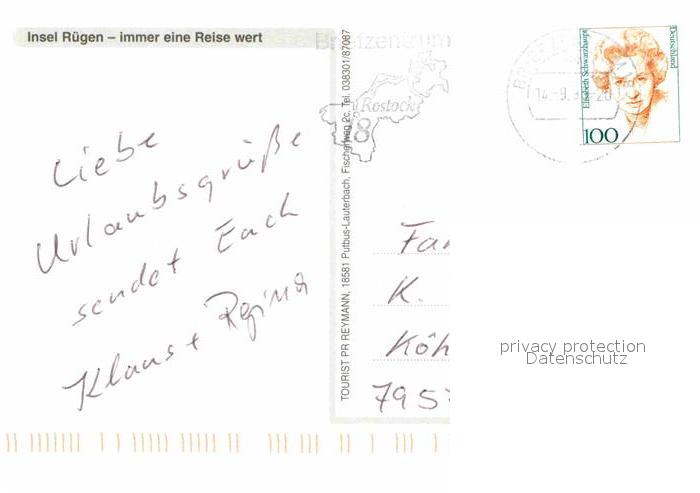 Insel Rügen – immer eine Reise wert
Liebe
Urlaubsgrüße
sendet Euch
Klaus + Regina
TOURIST PR REYMANN, 18581 Putbus-Lauterbach, Fischerweg 2c, Tel. 038301/87087
Briefzentrum
Rostock
18
Elisabeth Schwarzhaupt
Deutschland
100
Fam
K.
Köh
7957
privacy protection
Datenschutz